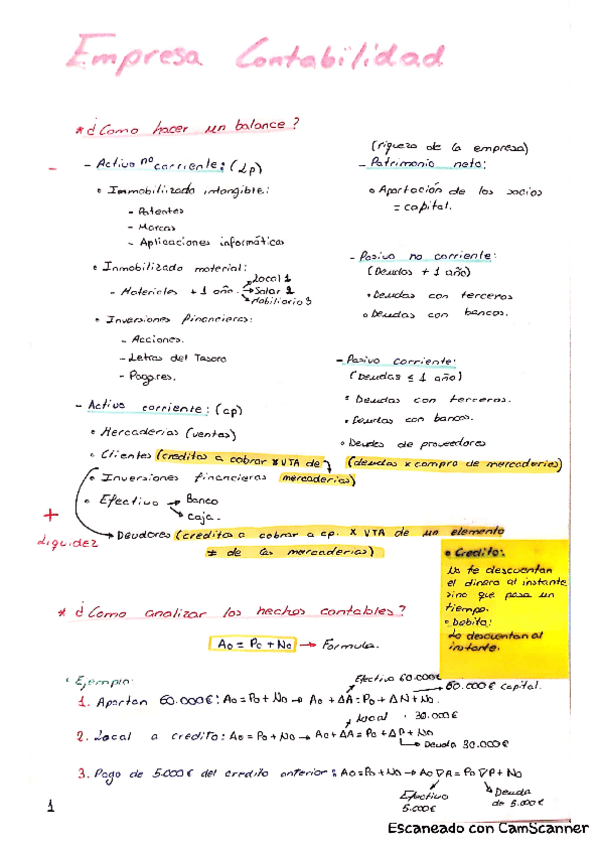 Empresa Contabilidad
* ¿Como hacer un balance?
- Activo no corriente: (Lp)
• Immobilizado intangible:
- Patentes
- Marcas
- Aplicaciones informáticas
• Inmobilizado material:
- Materiales + 1 año. → Local 1
→ Solar 2
→ Mobiliario 3
• Inversiones financieras:
- Acciones.
- Letras del Tesoro
- Pagares.
- Activo corriente: (cp)
• Mercaderias (ventas)
• Clientes (creditos a cobrar x VTA de
mercaderias)
• Inversiones financieras
• Efectivo → Banco
→ caja.
→ Deudores (creditos a cobrar a cp. x VTA de un elemento
≠ de las mercaderias)
-
+
Liquidez
(riqueza de la empresa)
- Patrimonio neto:
• Aportación de los socios
= capital.
- Pasivo no corriente:
(Deudas + 1 año)
• Deudas con terceros
• Deudas con bancos.
- Pasivo corriente:
(Deudas ≤ 1 año)
• Deudas con terceros.
• Deudas con bancos.
• Deudas de proveedores
(deudas x compra de mercaderias)
• Credito:
No te descuentan
el dinero al instante
sino que pasa un
tiempo.
• Debito:
Lo descuentan al
instante.
* ¿Como analizar los hechos contables?
Ao = Po + No → Formula.
• Ejemplo:
Efectivo 60.000€
1. Aportan 60.000€: Ao = Po + No → Ao + ΔA = Po + ΔN + No.
→ 60.000€ capital.
Local · 30.000€
2. Local a credito: Ao = Po + No → Ao + ΔA = Po + ΔP + No
→ Deuda 30.000€
3. Pago de 5.000€ del credito anterior: Ao = Po + No → Ao ∇A = Po ∇P + No
Efectivo
5.000€
Deuda
de 5.000€
1
Escaneado con CamScanner